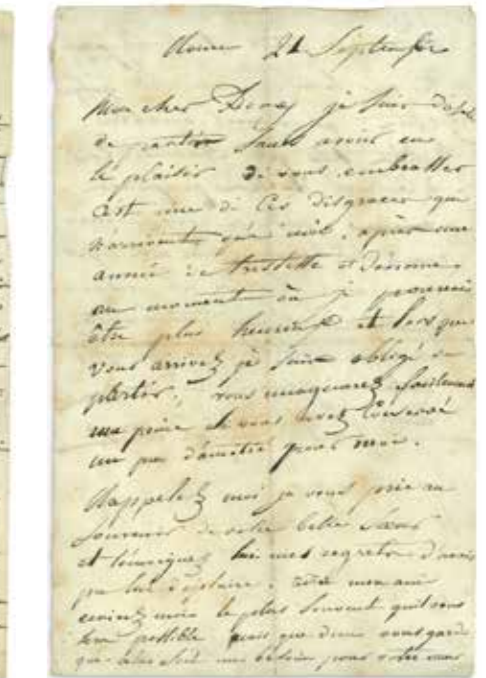 Rome 21 Septembre
Mon cher Deney je suis désolé
de partir sans avoir eu
le plaisir de vous embrasser
c'est une de ces disgraces qui
n'arrivent qu'à moi, après une
année de tristesse et d'ennui
au moment où je pourrais
être plus heureux et lorsque
vous arrivez je suis obligé de
partir, vous imaginerez facilement
ma peine si vous avez conservé
un peu d'amitié pour moi.
Rappelez moi je vous prie au
souvenir de votre belle sœur
et témoignez lui mes regrets d'avoir
pu lui déplaire; mon ami
écrivez moi le plus souvent qu'il vous
sera possible que dieu vous garde
que cela soit un besoin pour votre